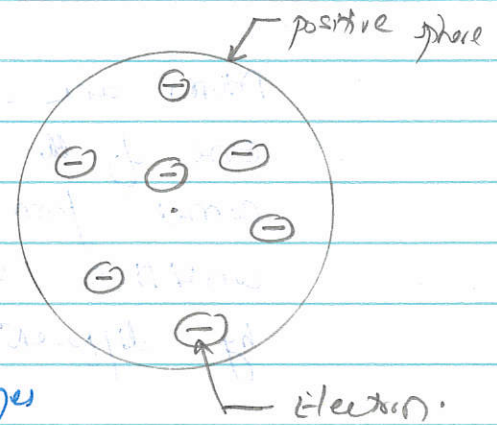 positive sphere
Electron.